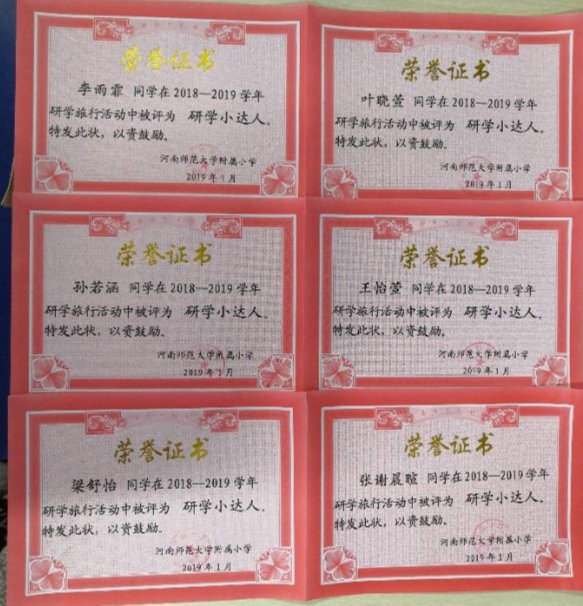 荣誉证书
李雨霏 同学在2018—2019学年
研学旅行活动中被评为 研学小达人。
特发此状，以资鼓励。
河南师范大学附属小学
2019年1月
荣誉证书
叶晓萱 同学在2018—2019学年
研学旅行活动中被评为 研学小达人。
特发此状，以资鼓励。
河南师范大学附属小学
2019年1月
荣誉证书
孙若涵 同学在2018—2019学年
研学旅行活动中被评为 研学小达人。
特发此状，以资鼓励。
河南师范大学附属小学
2019年1月
荣誉证书
王怡萱 同学在2018—2019学年
研学旅行活动中被评为 研学小达人。
特发此状，以资鼓励。
河南师范大学附属小学
2019年1月
荣誉证书
梁舒怡 同学在2018—2019学年
研学旅行活动中被评为 研学小达人。
特发此状，以资鼓励。
河南师范大学附属小学
2019年1月
荣誉证书
张谢晨暄 同学在2018—2019学年
研学旅行活动中被评为 研学小达人。
特发此状，以资鼓励。
河南师范大学附属小学
2019年1月